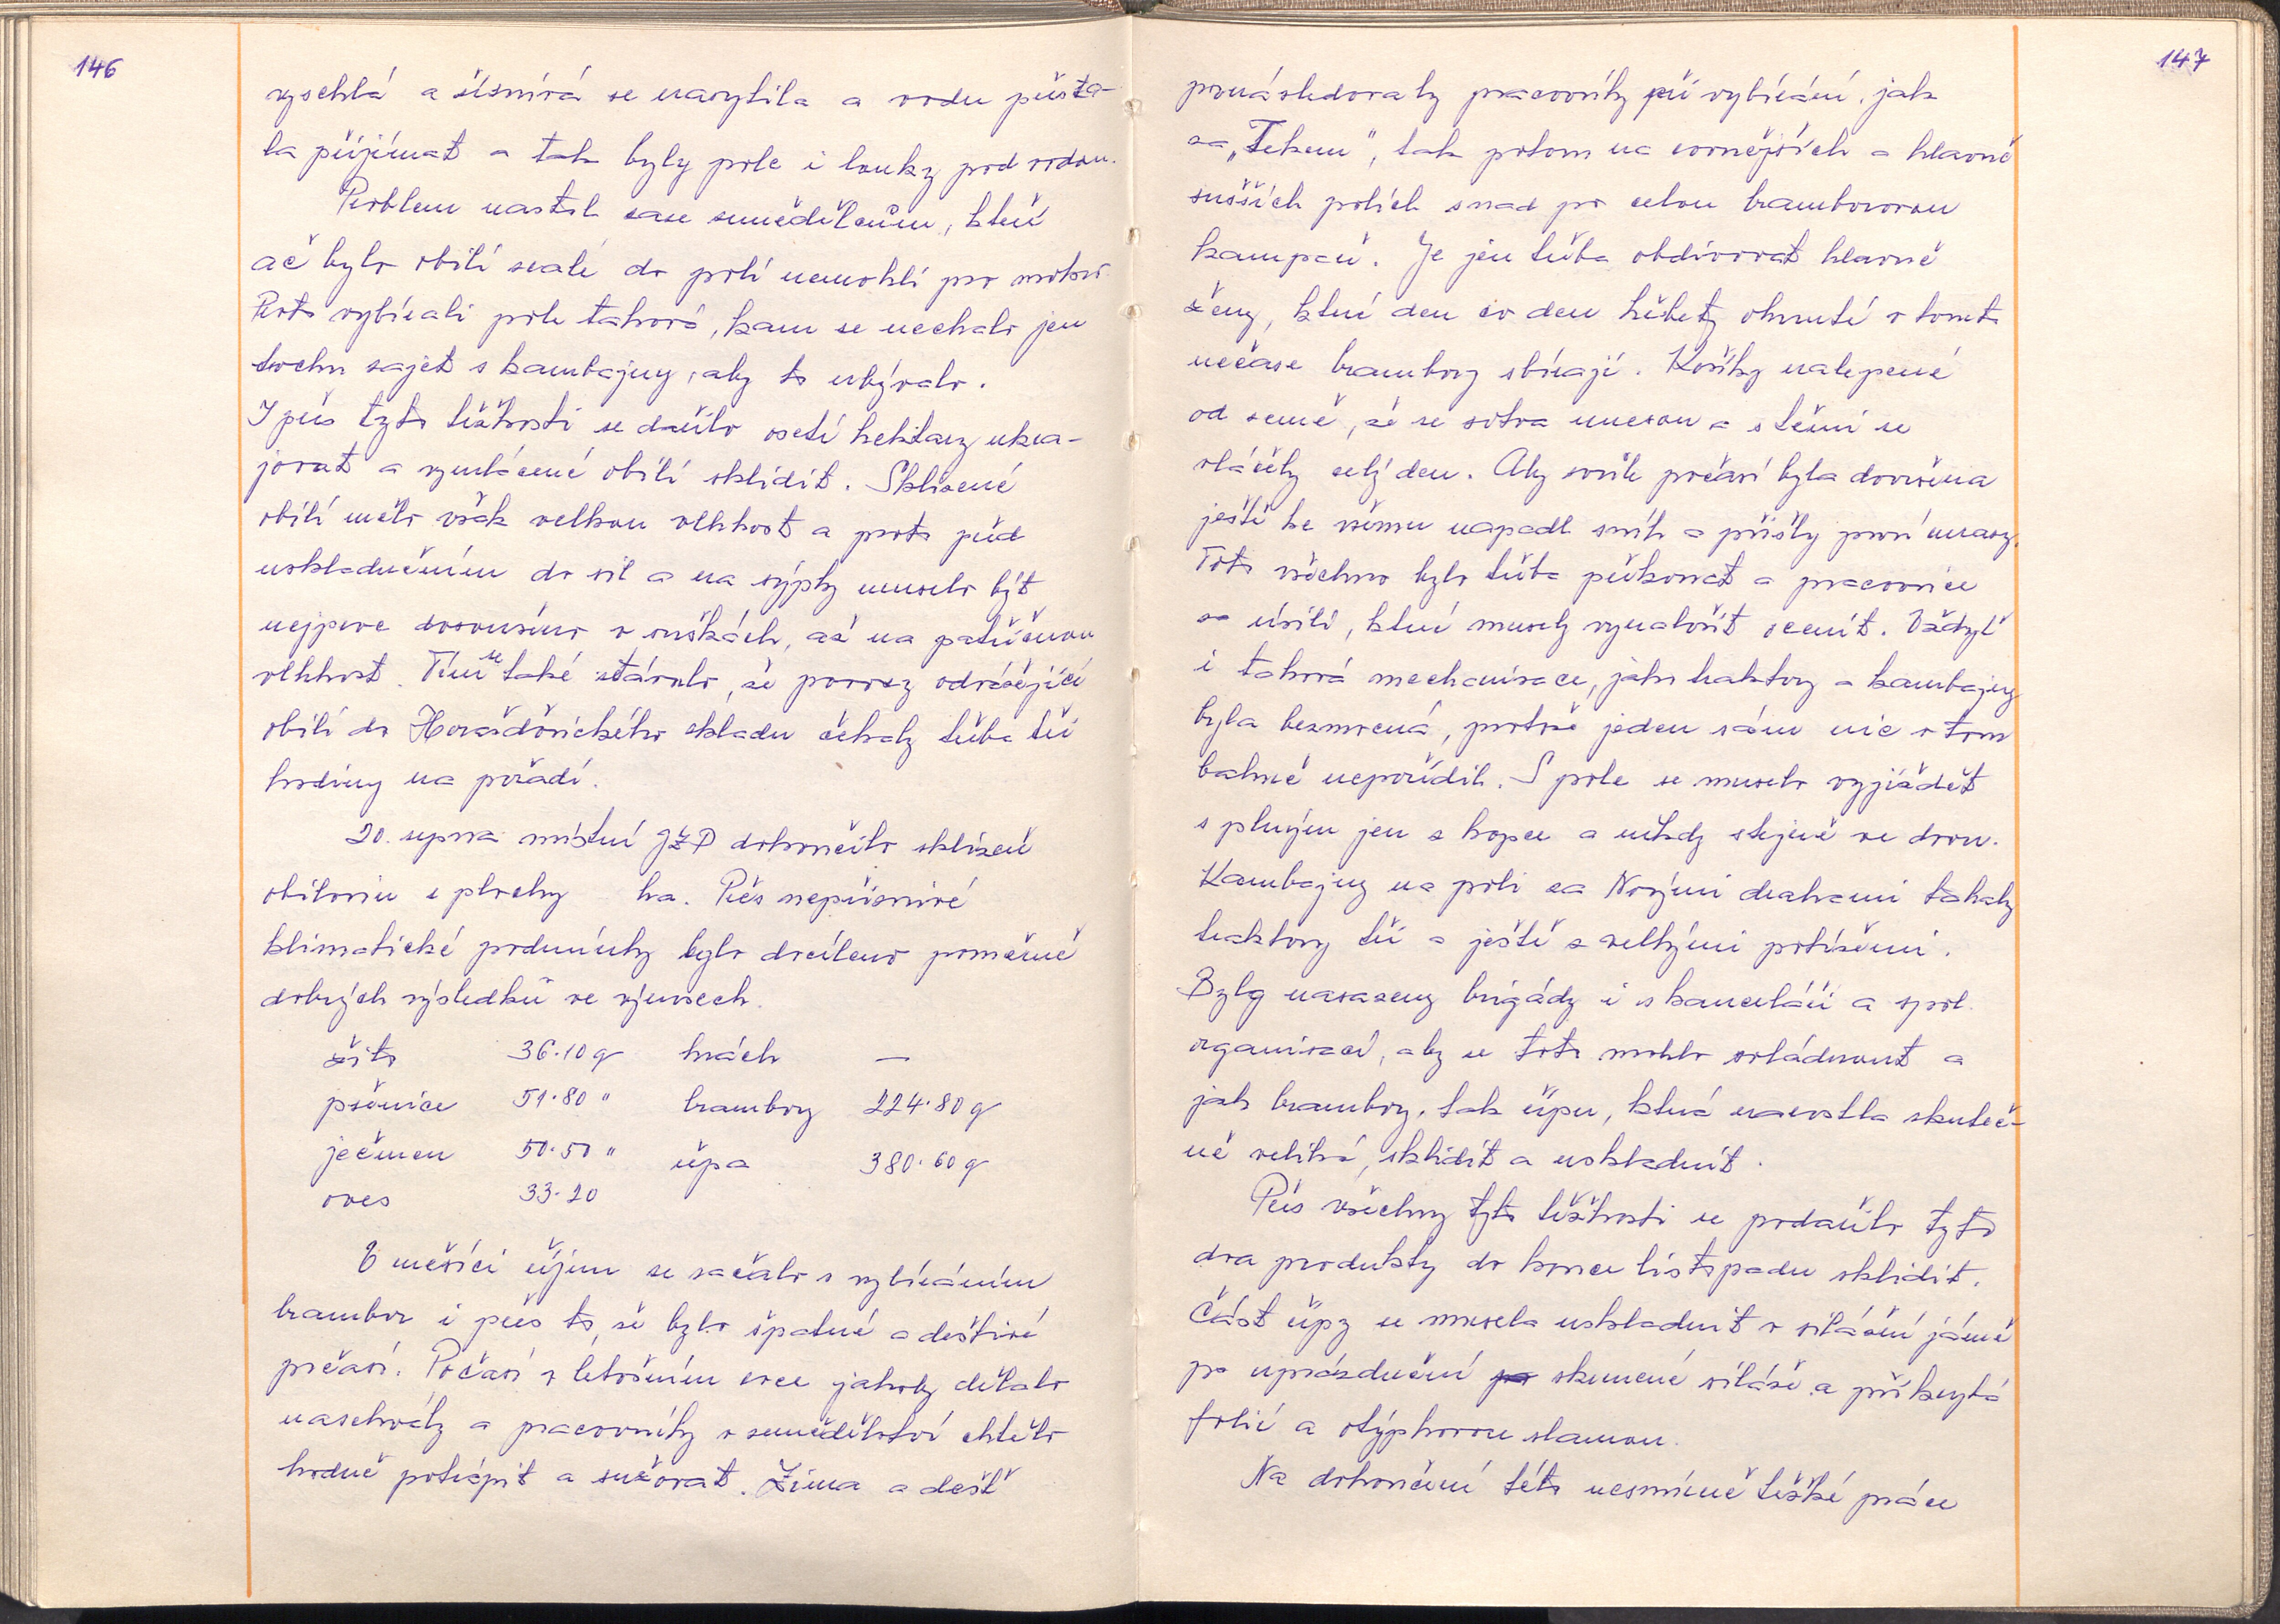 146
vyschlá a žíznivá se nasytila a vodu přesta-
la přijímat a tak byly pole i louky pod vodou.
Problem nastal zase zemědělcům, kteří
ač bylo obilí zralé do polí nemohli pro mokro.
Proto vybírali pole taková, kam se nechalo jen
trochu zajet s kombajny, aby to ubývalo.
I přes tyto těžkosti se dařilo oseté hektary ukra-
jovat a vymlácené obilí sklidit. Sklizené
obilí mělo však velkou vlhkost a proto před
uskladněním do sil a na sýpky muselo být
nejprve dosoušeno v suškách, až na patřičnou
vlhkost. Tím se také stávalo, že povozy odvážející
obilí do Horažďovického skladu čekaly třeba tři
hodiny na pořadí.
20. srpna místní JZD dokončilo sklizeň
obilovin z plochy ha. Přes nepříznivé
klimatické podmínky bylo docíleno poměrně
dobrých výsledků ve výnosech.
žito 36.10 q hrách —
pšenice 51.80 " brambory 224.80 q
ječmen 50.50 " řepa 380.60 q
oves 33.20
V měsíci říjnu se začalo s vybíráním
brambor i přes to, že bylo špatné a deštivé
počasí. Počasí v letošním roce jakoby dělalo
naschvály a pracovníky v zemědělství chtělo
hodně potrápit a sužovat. Zima a déšť
147
pronásledovaly pracovníky při vybírání, jak
za „Tekem", tak potom na rovnějších a hlavně
sušších polích snad po celou bramborovou
kampaň. Je jen třeba obdivovat hlavně
ženy, které den co den hřbety ohnuté v tomto
nečase brambory sbírají. Košíky nalepené
od země, že se sotva unesou a s těmi se
vláčely celý den. Aby zvůle počasí byla dovršena
ještě ke všemu napadl sníh a přišly první mrazy.
Toto všechno bylo třeba překonat a pracovnice
za úsilí, které musely vynaložit ocenit. Vždyť
i taková mechanisace, jako traktory a kombajny
byla bezmocná, protože jeden sám nic v tom
bahně nepořídil. S pole se muselo vyjíždět
s plným jen z kopce a někdy stejně ve dvou.
Kombajny na poli za Novými drahami tahaly
traktory tři a ještě s velkými potížemi.
Byly nasazeny brigády i z kanceláří a spol.
organisací, aby se toto mohlo zvládnout a
jak brambory, tak řepu, která narostla skuteč-
ně veliká, sklidit a uskladnit.
Přes všechny tyto těžkosti se podařilo tyto
dva produkty do konce listopadu sklidit.
Část řepy se musela uskladnit v silážní jámě
po uprázdnění zkrmené siláže a přikrytá
folií a otýpkovou slamou.
Na dokončení této nesmírně těžké práce